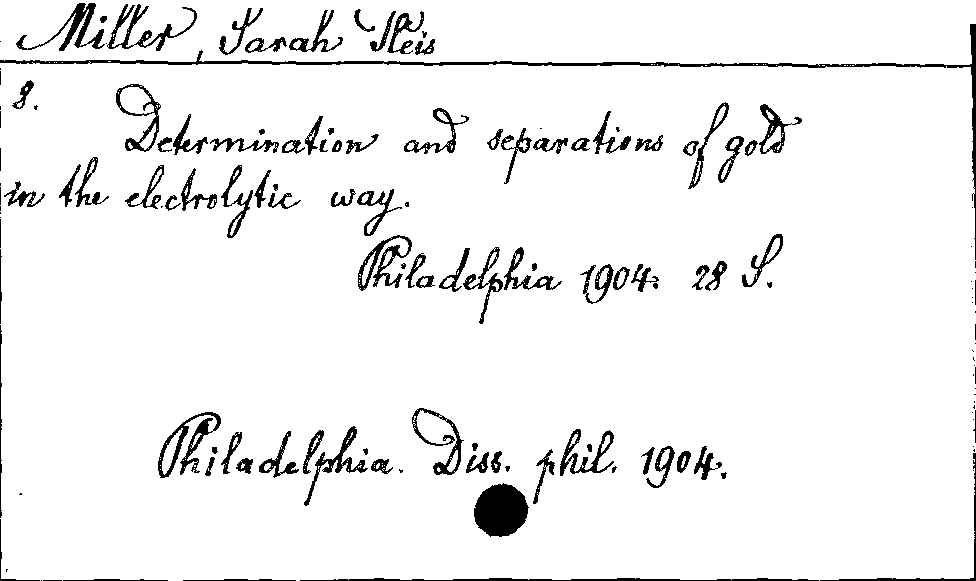 Miller, Sarah
8.
Determination and separations of gold
in the electrolytic way.
Philadelphia 1904. 28 S.
Philadelphia. Diss. phil. 1904.